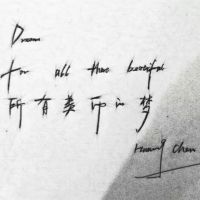 Dream
for all that beautiful
所有美印的梦
Huang Chen